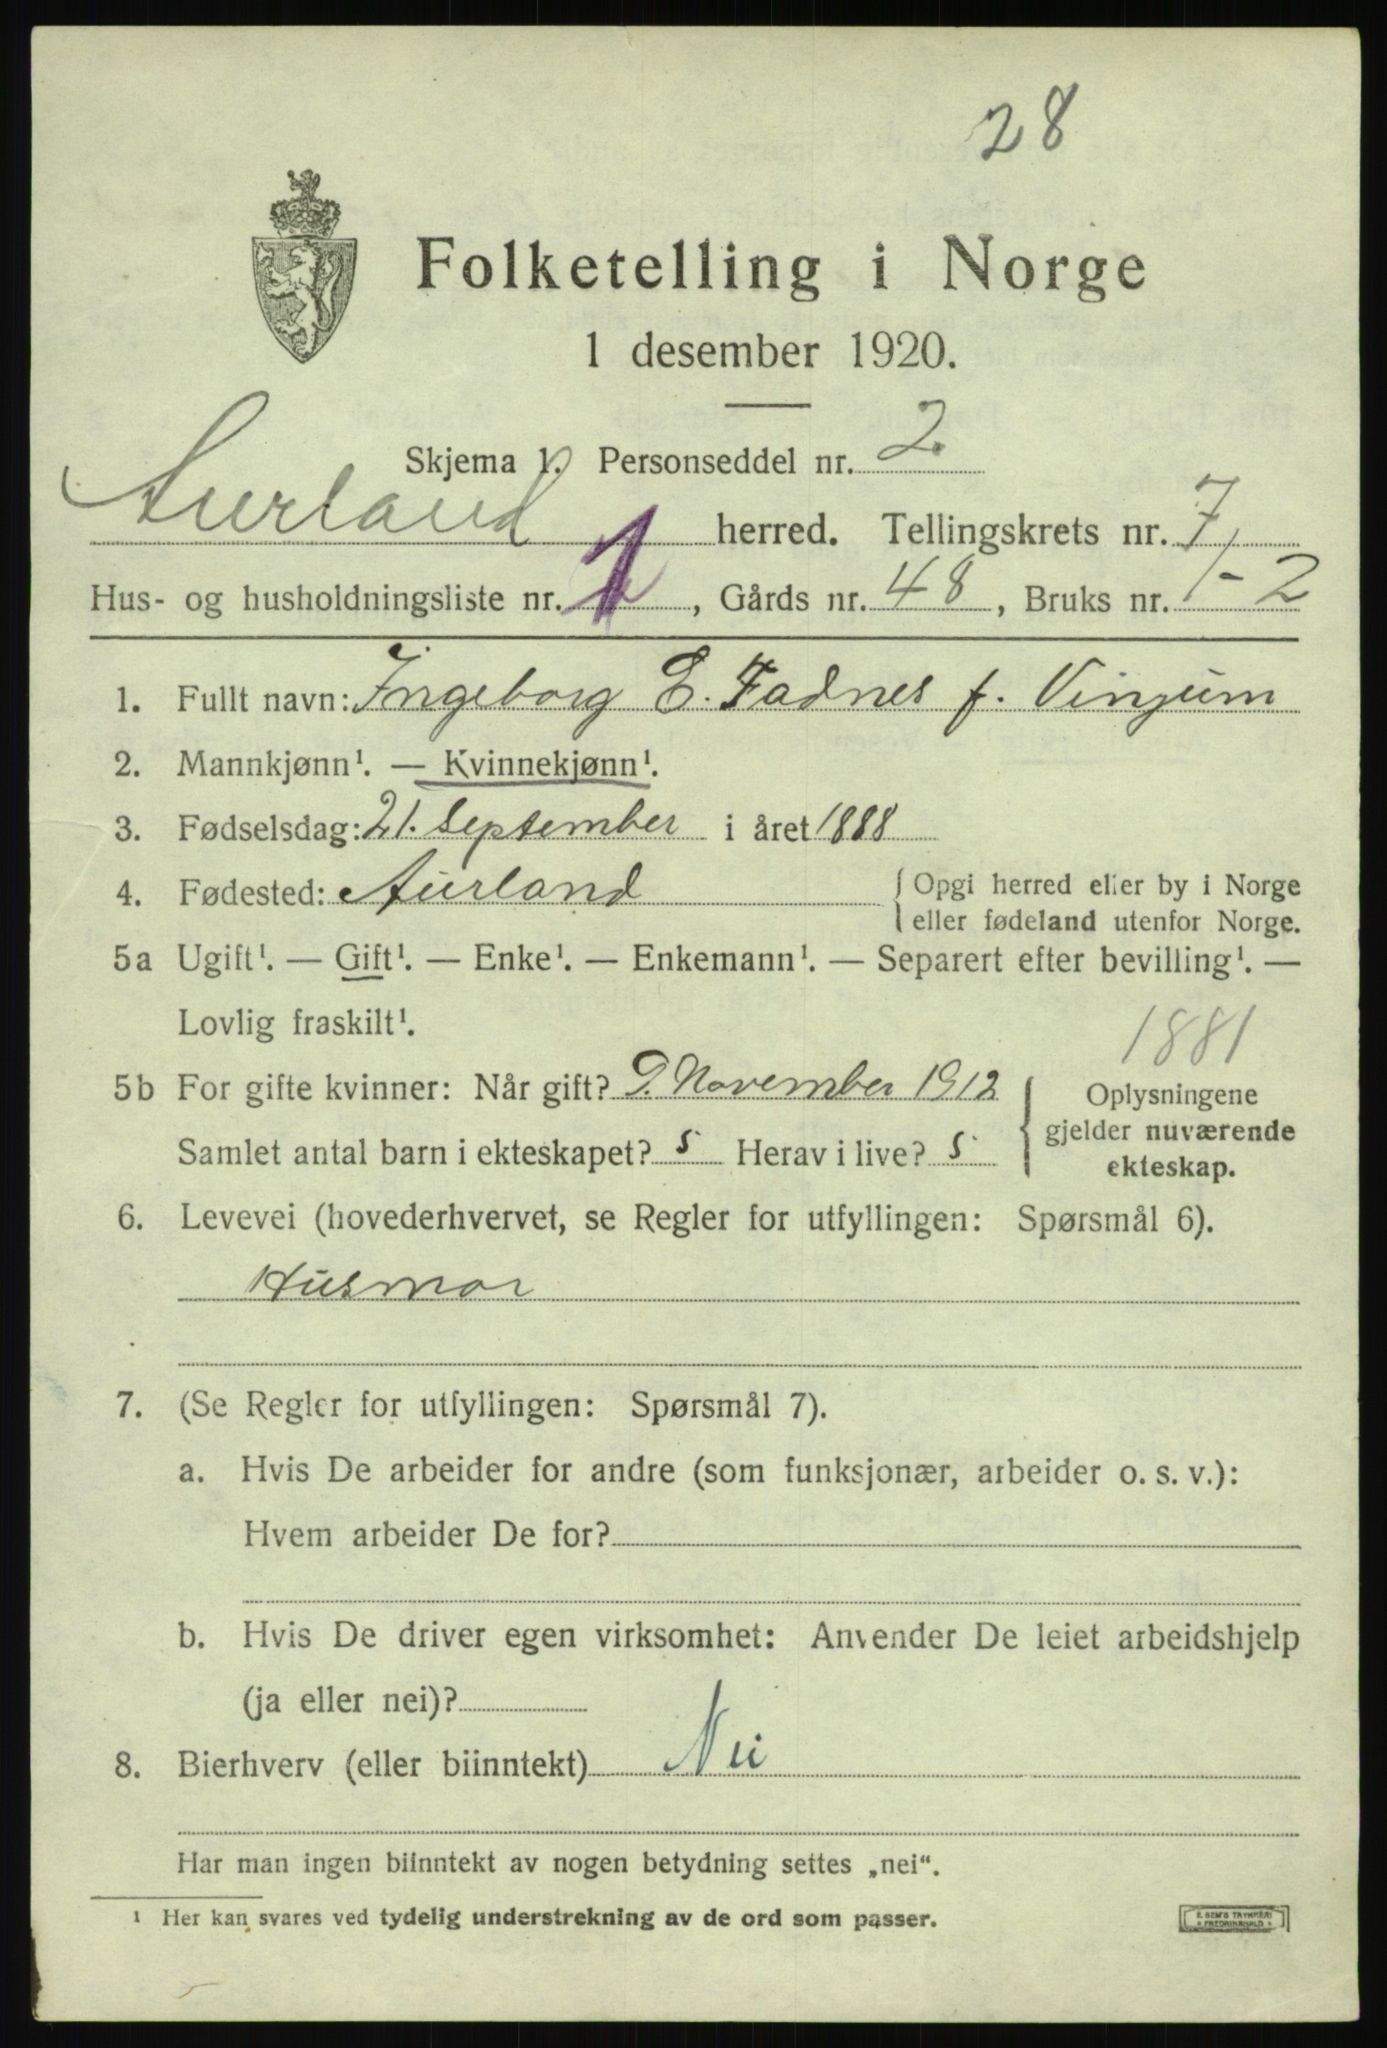 28
Folketelling i Norge
1 desember 1920.
Skjema 1. Personseddel nr. 2
Aurland herred. Tellingskrets nr. 7
Hus- og husholdningsliste nr. 1, Gårds nr. 48, Bruks nr. 1-2
1. Fullt navn: Ingeborg E. Fadnes f. Vinjum
2. Mannkjønn¹. — Kvinnekjønn¹.
3. Fødselsdag: 21. September i året 1888
4. Fødested: Aurland { Opgi herred eller by i Norge
eller fødeland utenfor Norge.
5a Ugift¹. — Gift¹. — Enke¹. — Enkemann¹. — Separert efter bevilling¹. —
Lovlig fraskilt¹.
1881
5b For gifte kvinner: Når gift? 9. November 1912 { Oplysningene
gjelder nuværende
ekteskap.
Samlet antal barn i ekteskapet? 5 Herav i live? 5
6. Levevei (hovederhvervet, se Regler for utfyllingen: Spørsmål 6).
Husmor
7. (Se Regler for utfyllingen: Spørsmål 7).
a. Hvis De arbeider for andre (som funksjonær, arbeider o. s. v.):
Hvem arbeider De for?
b. Hvis De driver egen virksomhet: Anvender De leiet arbeidshjelp
(ja eller nei)?
8. Bierhverv (eller biinntekt) Nei
Har man ingen biinntekt av nogen betydning settes „nei“.
¹ Her kan svares ved tydelig understrekning av de ord som passer.
E. SEM'S TRYKKERI
FREDRIKSHALD